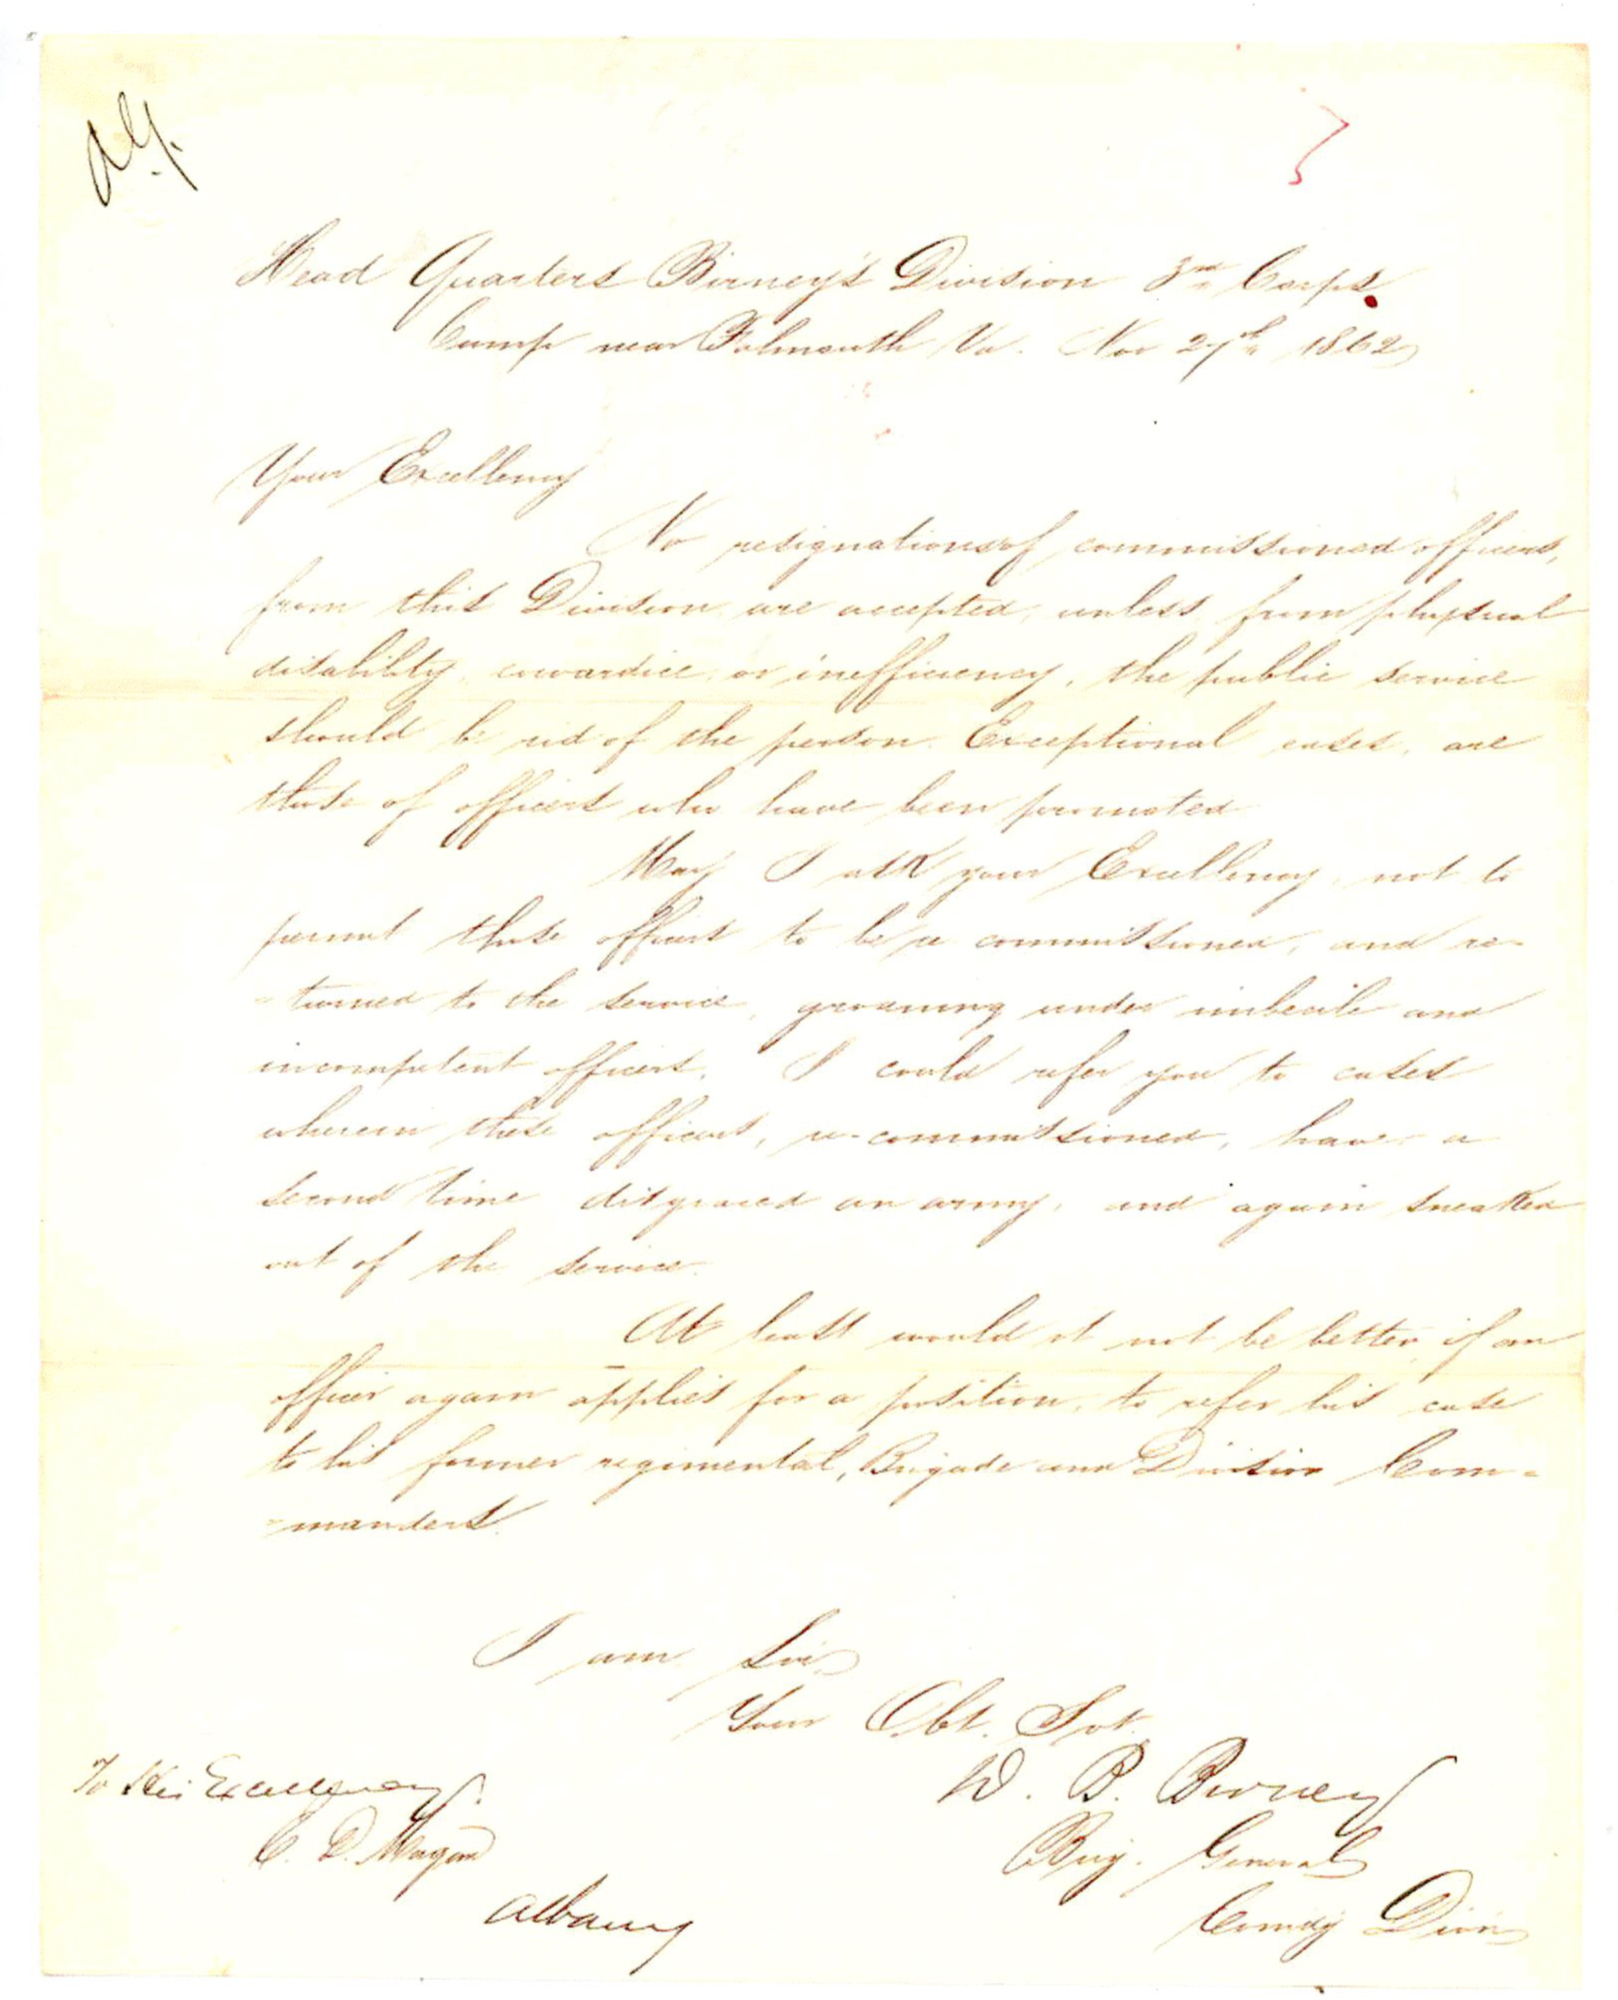 A.G.
Head Quarters Birney's Division 3rd Corps
Camp near Falmouth Va. Nov 27th 1862
Your Excellency
No resignations of commissioned officers,
from this Division are accepted, unless from physical
disability, cowardice, or inefficiency, the public service
should be rid of the person. Exceptional cases, are
those of officers who have been promoted
May I ask your Excellency, not to
permit these officers to be re commissioned, and re-
-turned to the service, groaning under imbecile and
incompetent officers. I could refer you to cases
wherein these officers, re-commissioned, have a
second time disgraced an army, and again sneaked
out of the service.
At least would it not be better, if an
officer again applies for a position, to refer his case
to his former regimental, Brigade and Division Com-
-manders.
I am Sir
Your Obt. Svt.
D. B. Birney
Brig. General
Comdg Divn
To His Excellency
E. D. Morgan
Albany